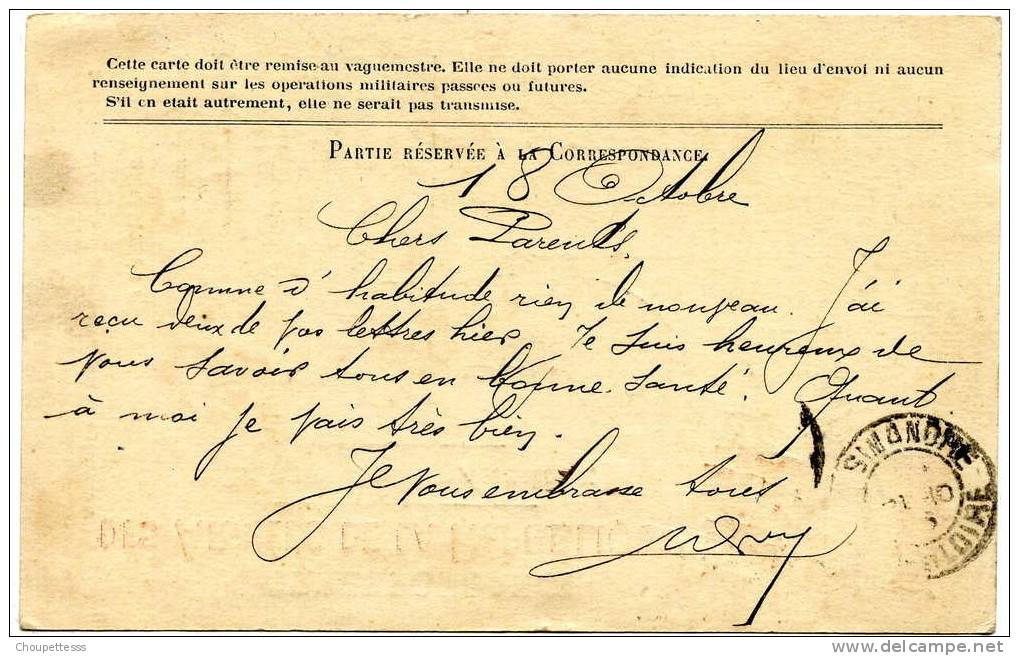 Cette carte doit être remise au vaguemestre. Elle ne doit porter aucune indication du lieu d'envoi ni aucun
renseignement sur les operations militaires passees ou futures.
S'il en etait autrement, elle ne serait pas transmise.
PARTIE RÉSERVÉE À LA CORRESPONDANCE.
18 Octobre
Chers Parents,
Comme d'habitude rien de nouveau. J'ai
reçu deux de vos lettres hier. Je suis heureux de
vous savoir tous en bonne santé. Quant
à moi je vais très bien.
Je vous embrasse tous
SIMANDRE
LOIRE
Choupettesss
delcampe.net